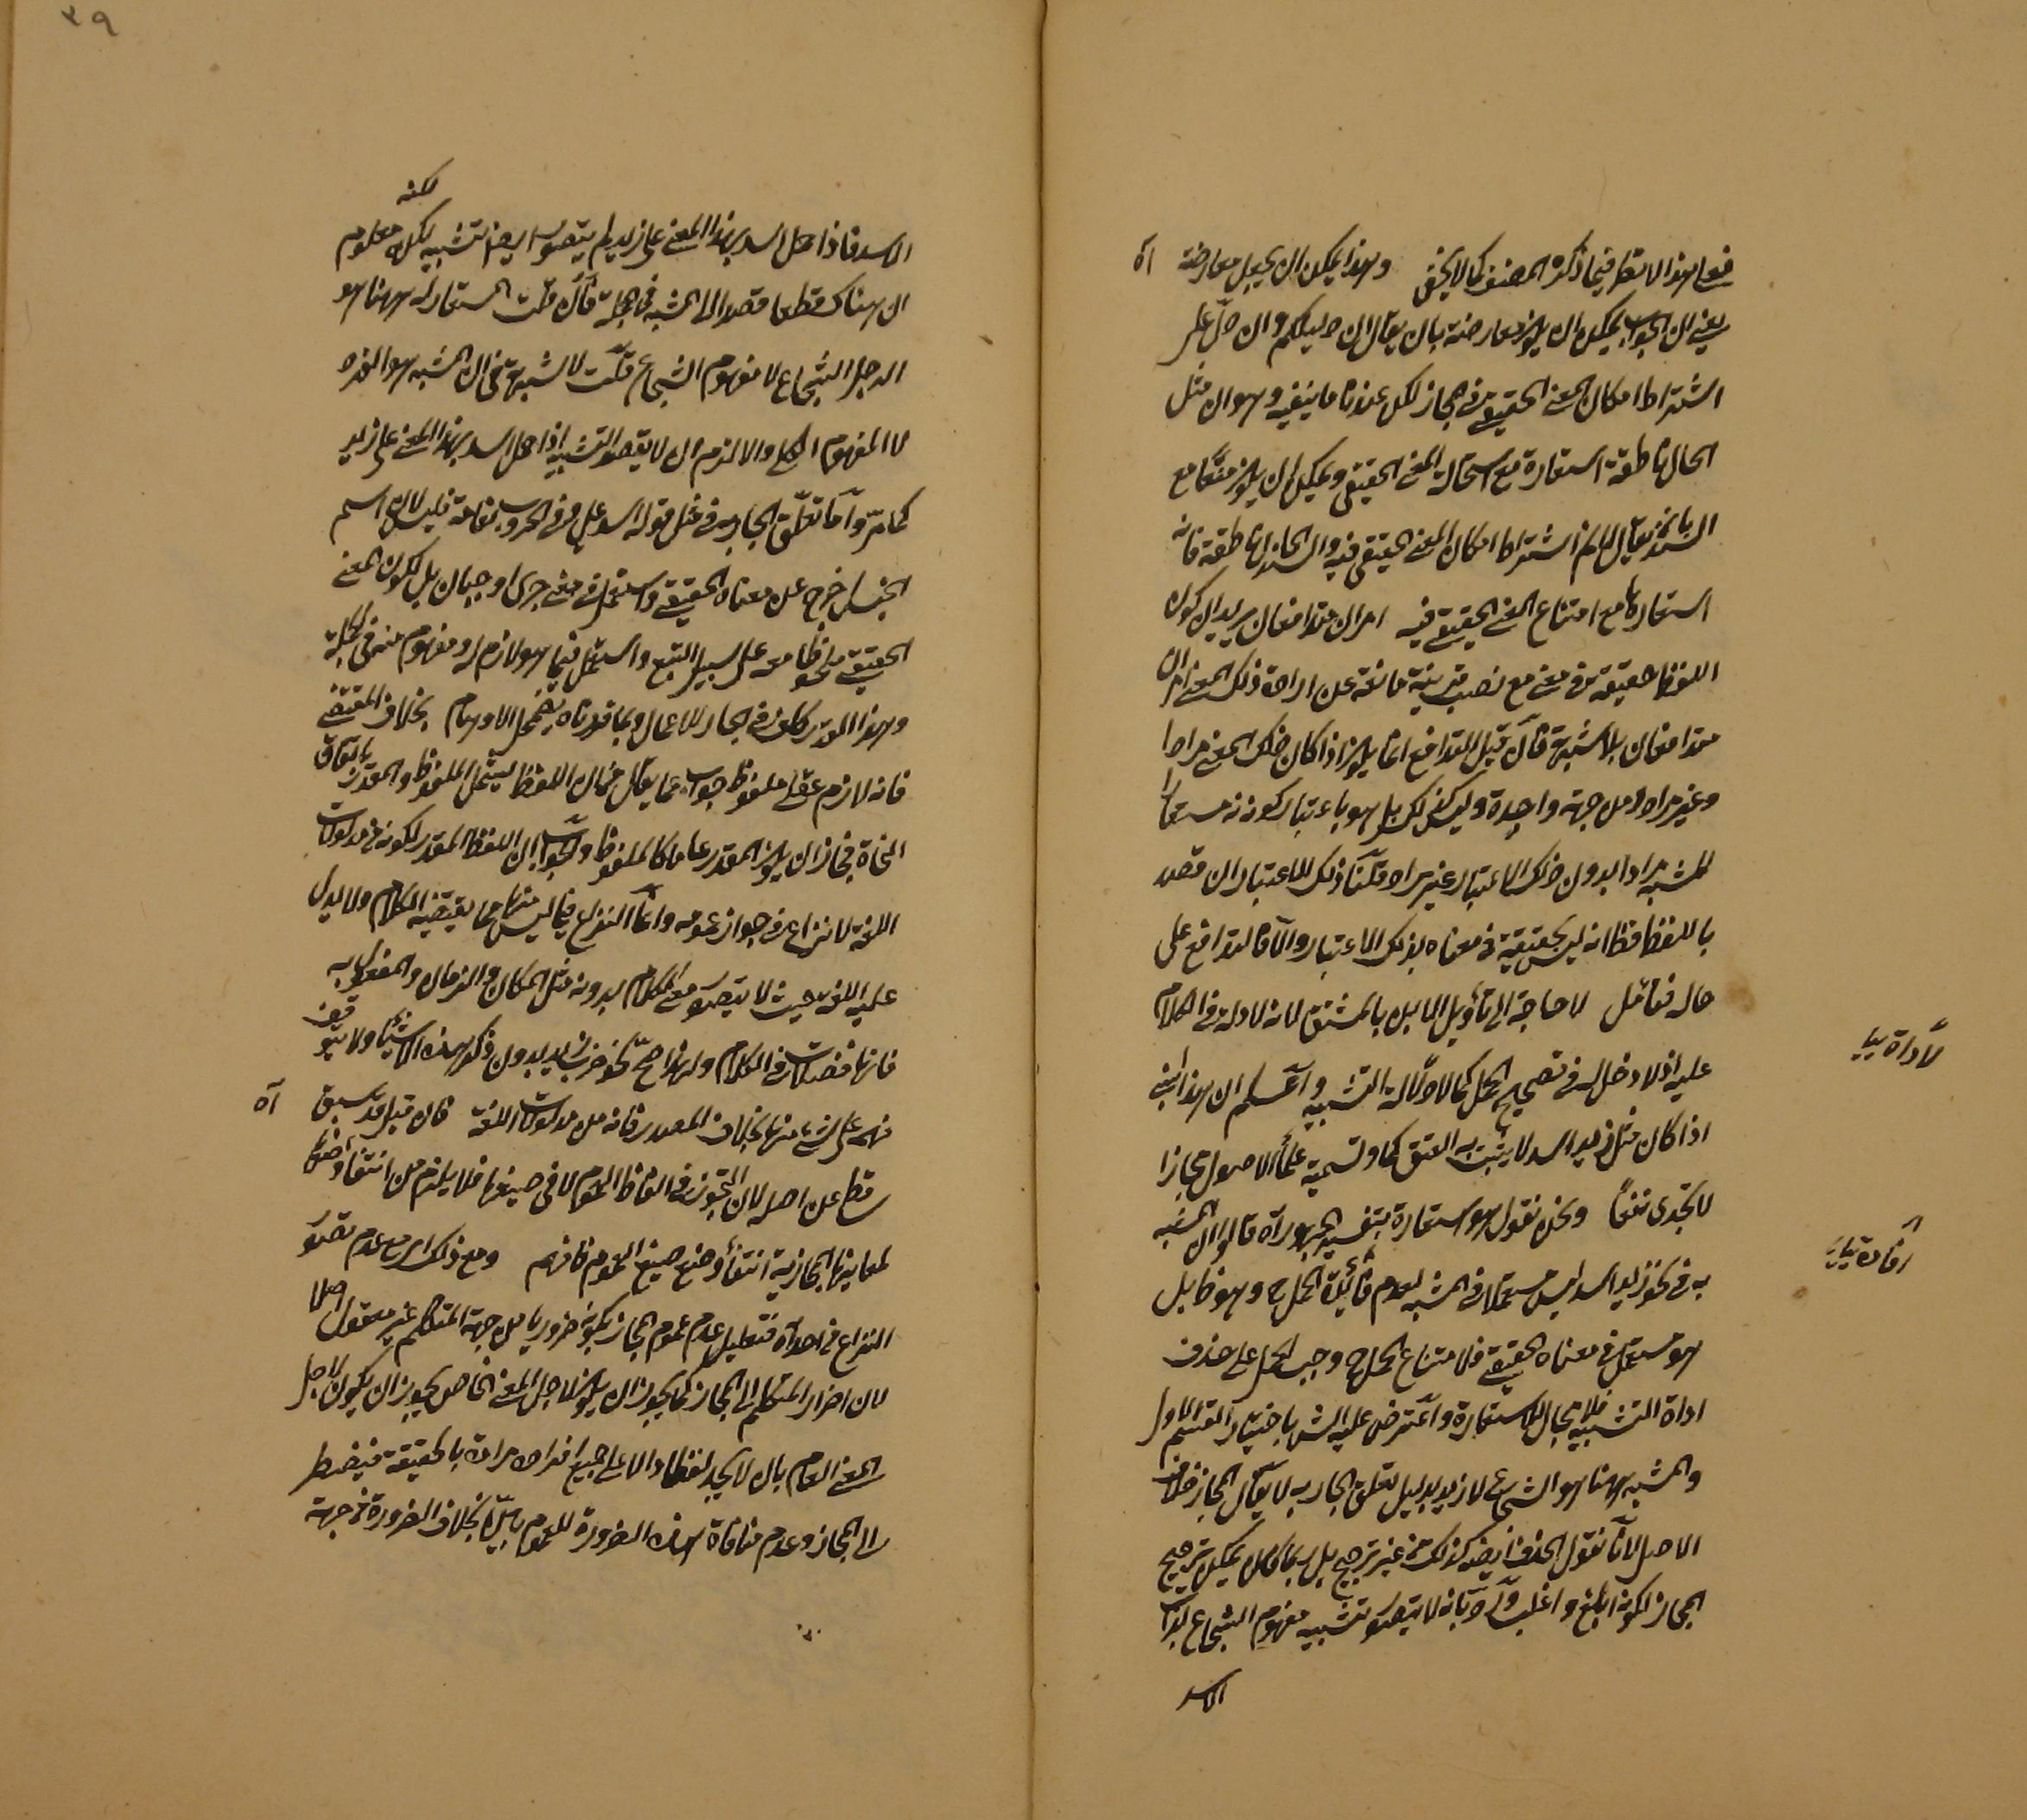 فعلى هذا لا نظر فيما ذكره المصنف كما لا يخفى وهذا يمكن ان يجعل معارضة اه
يعنى ان الجواب يمكن ان يكون معارضة بان يقال ان دليلكم وان دل على
اشتراط امكان المعنى الحقيقى فى المجاز لكن عندنا ما ينفيه وهو ان مثل
الحال ناطقة استعارة مع استحالة المعنى الحقيقى ويمكن ان يكون منعا مع
السند بان يقال لا نم اشتراط امكان المعنى الحقيقى فيه والسند الحال ناطقة فانه
استعارة مع امتناع المعنى الحقيقى فيه امران متدافعان يريد ان كون
اللفظ حقيقة فى معنى مع نصب قرينة مانعة عن ارادة ذلك المعنى امران
متدافعان بلا شبهة فان قيل التدافع انما يكون اذا كان ذلك المعنى مرادا
وغير مراد من جهة واحدة وليس كذلك بل هو باعتبار كونه مستعارا
للمشبه مرادا بدون ذلك الاعتبار غير مراد قلنا ذلك الاعتبار ان قصد
باللفظ فظ انه ليس بحقيقة فى معناه بذلك الاعتبار والا فالتدافع على
حاله فتأمل لا حاجة الى تأويل المابل بالمشتق لانه لا دلالة فى الكلام
عليه اذ لا دخل له فى تصحيح الحمل كما لا دلالة التشبيه واعلم ان هذا
اذا كان مثل زيد اسد لا يثبت به العتق كما وتسمية علماء الاصول مجازا
لا يجدى نفعا ونحن نقول هو استعارة بتفسير الجمهور اه قالوا ان المشبه
به فى نحو زيد اسد ليس مستعملا فى المشبه لعدم فائدة الحمل ح وهو ظ بل
هو مستعمل فى معناه الحقيقى فلامتناع الحمل ح وجب الحمل على حذف
اداة التشبيه فلا مجال للاستعارة واعترض عليه الش باختيار القسم الاول
والمشبه ههنا هو الشجاع لا زيد بدليل تعلق الجار به لا يقال المجاز خلاف
الاصل لانا نقول الحذف ايض كذلك من غير ترجيح بل ربما يمكن ترجيح
المجاز لكونه ابلغ واغلب ورد بانه لا يتصور تشبيه مفهوم الشجاع بذات
الاسد
لاداة
افادة
٣٩
الاسد فاذا حمل اسد بهذا المعنى على زيد لم يتصور ايض تشبيه لكنه معلوم
ان هناك قطعا قصدا الى المشبه فى الجملة فان قلت المستعار له ههنا هو
الرجل الشجاع لا مفهوم الشجاع قلت لا شبهة فى ان المشبه هو الفرد
لا المفهوم الكلى والا لزم ان لا يقصد التشبيه اذا حمل اسد بهذا المعنى على زيد
كما مر واما تعلق الجار به فى مثل قوله اسد على وفى الحروب نعامة فليس لان اسم
الجنس خرج عن معناه الحقيقى واستعمل فى معنى جرى او جبان بل لكون المعنى
الحقيقى ملحوظا معه على سبيل التبع واستعمل فيما هو لازم له ومفهوم منه فى الجملة
وهذا القدر كاف فى الجار للاعمال وبما قررناه يضمحل الاوهام بخلاف المقتضى
فانه لازم عقلى ملفوظ جواب عما يقال فان اللفظ يشمل الملفوظ والمقدر باتفاق
النحاة فجاز ان يكون المقدر عاما كالملفوظ والجواب ان اللفظ المقدر لكونه من مدلولات
اللغة لا نزاع فى جواز عمومه وانما النزاع فيما ليس منها مما يقتضيه الكلام ولا يدل
عليه اللغة حيث لا يتصور معنى الكلام بدونه مثل المكان والزمان والمفعول به
فانها فضلات فى الكلام ولهذا صح نحو ضرب زيد بدون ذكر هذه الاشياء ولا يتوقف
فهمه على شىء منها بخلاف المصدر فانه من مدلولات اللغة فان قيل قد سبق اه
ساقط عن اصله لان التجوز فى الفاظ العموم لا فى صيغها فلا يلزم من انتفاء وضعها
لمعانيها المجازية انتفاء وضع صيغ العموم فافهم ومع ذلك اى مع عدم تصور
النزاع من احد اه فتعليل عدم عموم المجاز بكونه ضروريا من جهة المتكلم غير معقول اصلا
لان اضرار المتكلم الى المجاز كما يجوز ان يكون لاجل المعنى الخاص يجوز ان يكون لاجل
المعنى العام بان لا يجد لفظا دالا على جميع افراد مراده بالحقيقة فيضطر
الى المجاز وعدم منافاة هذه الضرورة للعموم بين بخلاف الضرورة من جهة